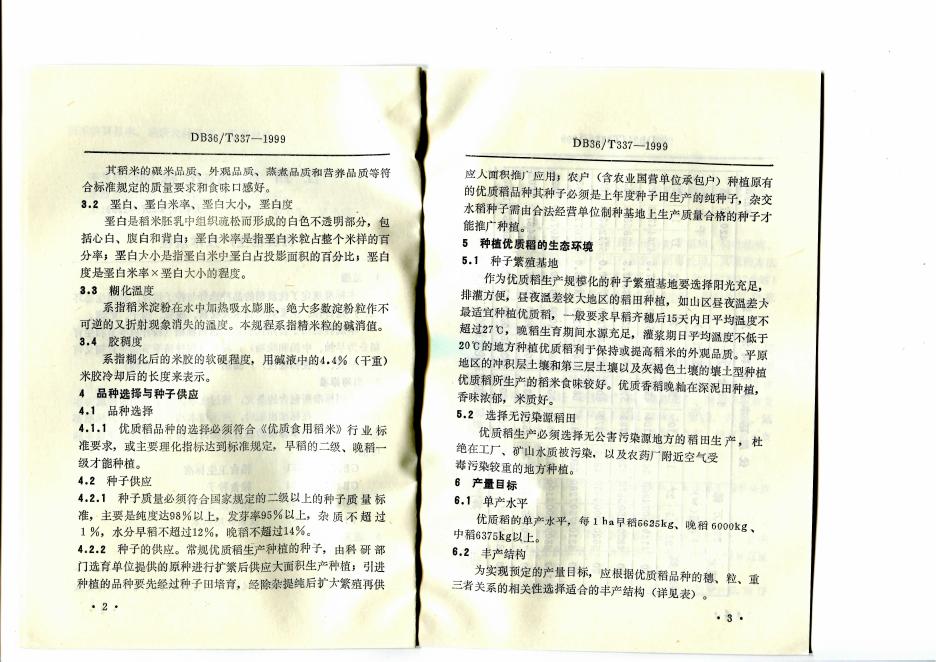 DB36/T337—1999
其稻米的碾米品质、外观品质、蒸煮品质和营养品质等符
合标准规定的质量要求和食味口感好。
3.2 垩白、垩白米率、垩白大小，垩白度
垩白是稻米胚乳中组织疏松而形成的白色不透明部分，包
括心白、腹白和背白；垩白米率是指垩白米粒占整个米样的百
分率；垩白大小是指垩白米中垩白占投影面积的百分比；垩白
度是垩白米率×垩白大小的程度。
3.3 糊化温度
系指稻米淀粉在水中加热吸水膨胀、绝大多数淀粉粒作不
可逆的又折射现象消失的温度。本规程系指精米粒的碱消值。
3.4 胶稠度
系指糊化后的米胶的软硬程度，用碱液中的4.4%（干重）
米胶冷却后的长度来表示。
4 品种选择与种子供应
4.1 品种选择
4.1.1 优质稻品种的选择必须符合《优质食用稻米》行业标
准要求，或主要理化指标达到标准规定，早稻的二级、晚稻一
级才能种植。
4.2 种子供应
4.2.1 种子质量必须符合国家规定的二级以上的种子质量标
准，主要是纯度达98%以上，发芽率95%以上，杂质不超过
1%，水分早稻不超过12%，晚稻不超过14%。
4.2.2 种子的供应。常规优质稻生产种植的种子，由科研部
门选育单位提供的原种进行扩繁后供应大面积生产种植；引进
种植的品种要先经过种子田培育，经除杂提纯后扩大繁殖再供
·2·
DB36/T337—1999
应人面积推广应用；农户（含农业国营单位承包户）种植原有
的优质稻品种其种子必须是上年度种子田生产的纯种子，杂交
水稻种子需由合法经营单位制种基地上生产质量合格的种子才
能推广种植。
5 种植优质稻的生态环境
5.1 种子繁殖基地
作为优质稻生产规模化的种子繁殖基地要选择阳光充足，
排灌方便，昼夜温差较大地区的稻田种植，如山区昼夜温差大
最适宜种植优质稻，一般要求早稻齐穗后15天内日平均温度不
超过27℃，晚稻生育期间水源充足，灌浆期日平均温度不低于
20℃的地方种植优质稻利于保持或提高稻米的外观品质。平原
地区的冲积层土壤和第三层土壤以及灰褐色土壤的壤土型种植
优质稻所生产的稻米食味较好。优质香稻晚籼在深泥田种植，
香味浓郁，米质好。
5.2 选择无污染源稻田
优质稻生产必须选择无公害污染源地方的稻田生产，杜
绝在工厂、矿山水质被污染，以及农药厂附近空气受
毒污染较重的地方种植。
6 产量目标
6.1 单产水平
优质稻的单产水平，每1ha早稻5625kg、晚稻6000kg、
中稻6375kg以上。
6.2 丰产结构
为实现预定的产量目标，应根据优质稻品种的穗、粒、重
三者关系的相关性选择适合的丰产结构（详见表）。
·3·